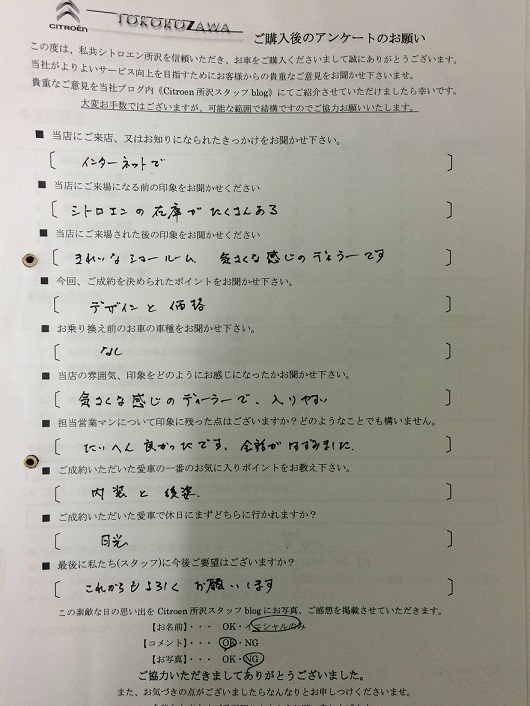 CITROËN
TOKOROZAWA
ご購入後のアンケートのお願い
この度は、私共シトロエン所沢を信頼いただき、お車をご購入くださいまして誠にありがとうございます。
当社がよりよいサービス向上を目指すためにお客様からの貴重なご意見をお聞かせ下さいませ。
貴重なご意見を当社ブログ内《Citroen所沢スタッフblog》にてご紹介させていただけましたら幸いです。
大変お手数ではございますが、可能な範囲で結構ですのでご協力お願いいたします。
■ 当店にご来店、又はお知りになられたきっかけをお聞かせ下さい。
[ インターネットで ]
■ 当店にご来場になる前の印象をお聞かせください
[ シトロエンの在庫がたくさんある ]
■ 当店にご来場された後の印象をお聞かせください
[ きれいなショールーム 気さくな感じのディーラーです ]
■ 今回、ご成約を決められたポイントをお聞かせ下さい。
[ デザインと価格 ]
■ お乗り換え前のお車の車種をお聞かせ下さい。
[ なし ]
■ 当店の雰囲気、印象をどのようにお感じになったかお聞かせ下さい。
[ 気さくな感じのディーラーで、入りやすい ]
■ 担当営業マンについて印象に残った点はございますか？どのようなことでも構いません。
[ たいへん良かったです、会話がはずみました ]
■ ご成約いただいた愛車の一番のお気に入りポイントをお教え下さい。
[ 内装と後姿. ]
■ ご成約いただいた愛車で休日にまずどちらに行かれますか？
[ 日光 ]
■ 最後に私たち(スタッフ)に今後ご要望はございますか？
[ これからもよろしくお願いします ]
この素敵な日の思い出をCitroen所沢スタッフblogにお写真、ご感想を掲載させていただきます。
【お名前】・・・ OK・イニシャルのみ
【コメント】・・・ OK・NG
【お写真】・・・ OK・NG
ご協力いただきましてありがとうございました。
また、お気づきの点がございましたらなんなりとお申しつけくださいませ。